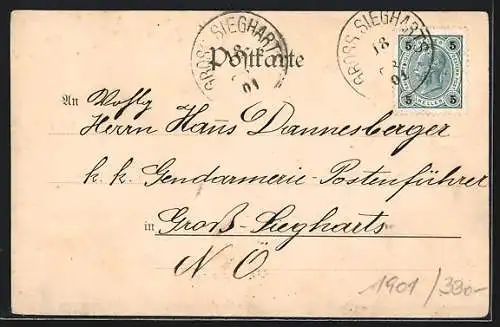 GROSS SIEGHARTS
18
01
Postkarte
GROSS SIEGHARTS
18
01
5 5
HELLER
5 5
An Wohlg
Herrn Hans Dannesberger
k. k. Gendarmerie-Postenführer
in Groß-Siegharts
N Ö
1901 / 330-